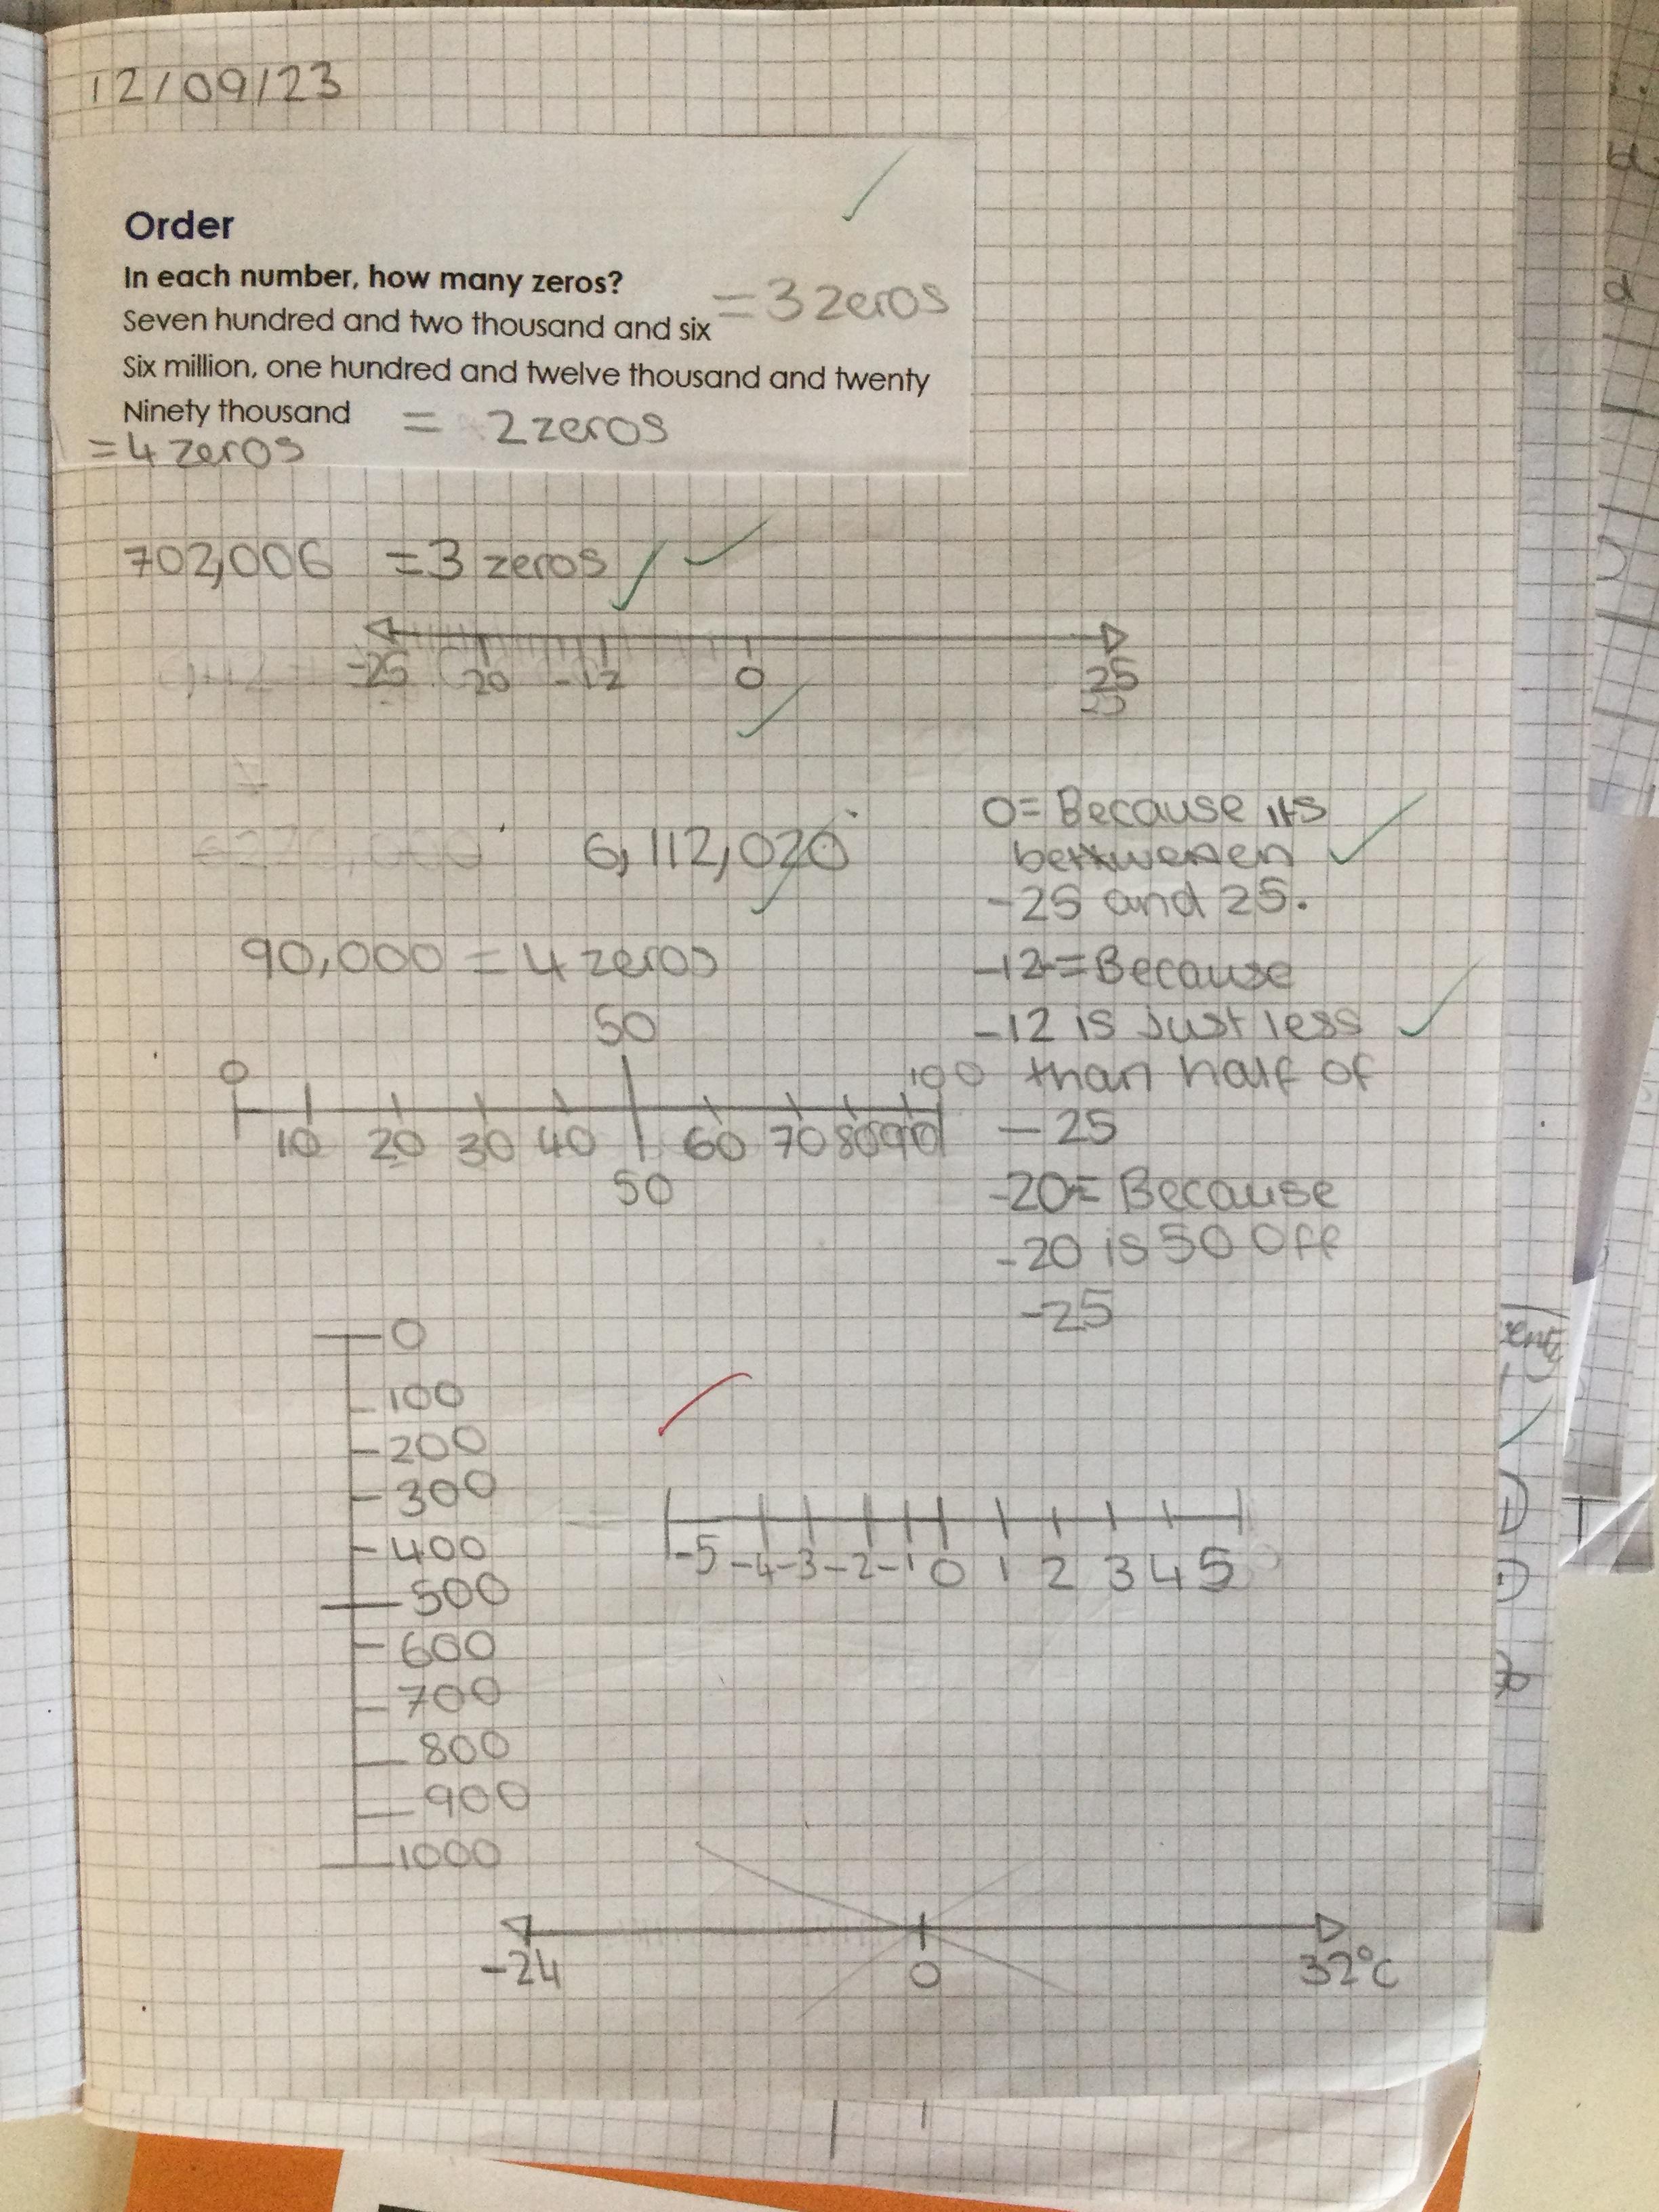 12/09/23
Order
In each number, how many zeros?
Seven hundred and two thousand and six = 3 zeros
Six million, one hundred and twelve thousand and twenty
Ninety thousand = 2 zeros
= 4 zeros
702,006 = 3 zeros
-25 -20 -12 0 25
6,112,020
90,000 = 4 zeros
50
0 100
10 20 30 40 60 70 80 90
50
0= Because its
betwenen
-25 and 25.
-12= Because
-12 is just less
than half of
-25
-20= Because
-20 is 50 Off
-25
0
100
200
300
400
500
600
700
800
900
1000
-5 -4 -3 -2 -1 0 1 2 3 4 5
-24 0 32°C